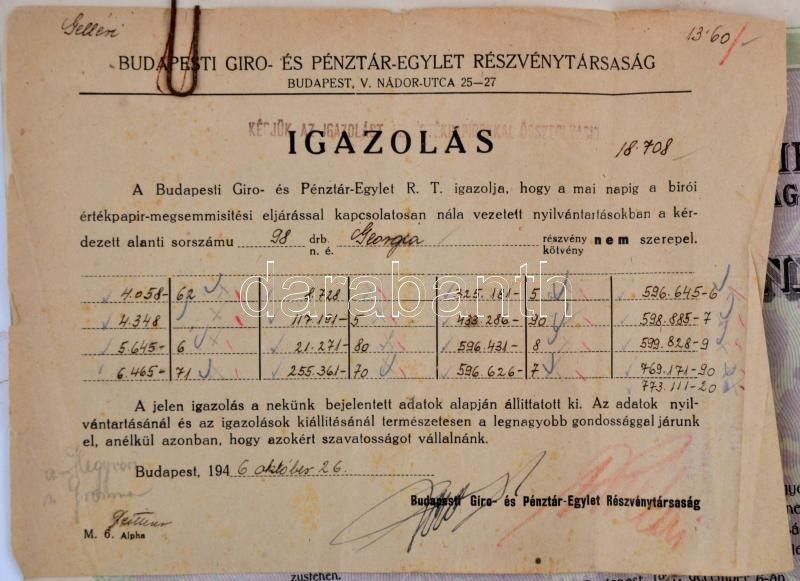 Gelléri
13·60/-
BUDAPESTI GIRO- ÉS PÉNZTÁR-EGYLET RÉSZVÉNYTÁRSASÁG
BUDAPEST, V. NÁDOR-UTCA 25—27
KÉRJÜK AZ IGAZOLÁST
IGAZOLÁS
18·708
A Budapesti Giro- és Pénztár-Egylet R. T. igazolja, hogy a mai napig a birói
értékpapir-megsemmisitési eljárással kapcsolatosan nála vezetett nyilvántartásokban a kér-
dezett alanti sorszámu 98 drb. n. é. Georgia részvény kötvény nem szerepel.
4.058-62 8.728 325.181-5 596.645-6
4.348 117.191-5 433.286-90 598.885-7
5.645-6 21.271-80 596.431-8 599.828-9
6.465-71 255.361-70 596.626-7 769.171-90
773.111-20
A jelen igazolás a nekünk bejelentett adatok alapján állittatott ki. Az adatok nyil-
vántartásánál és az igazolások kiállitásánál természetesen a legnagyobb gondossággal járunk
el, anélkül azonban, hogy azokért szavatosságot vállalnánk.
Budapest, 194 6 október 26.
Budapesti Giro- és Pénztár-Egylet Részvénytársaság
M. 6. Alpha
darabanth
zustehen.